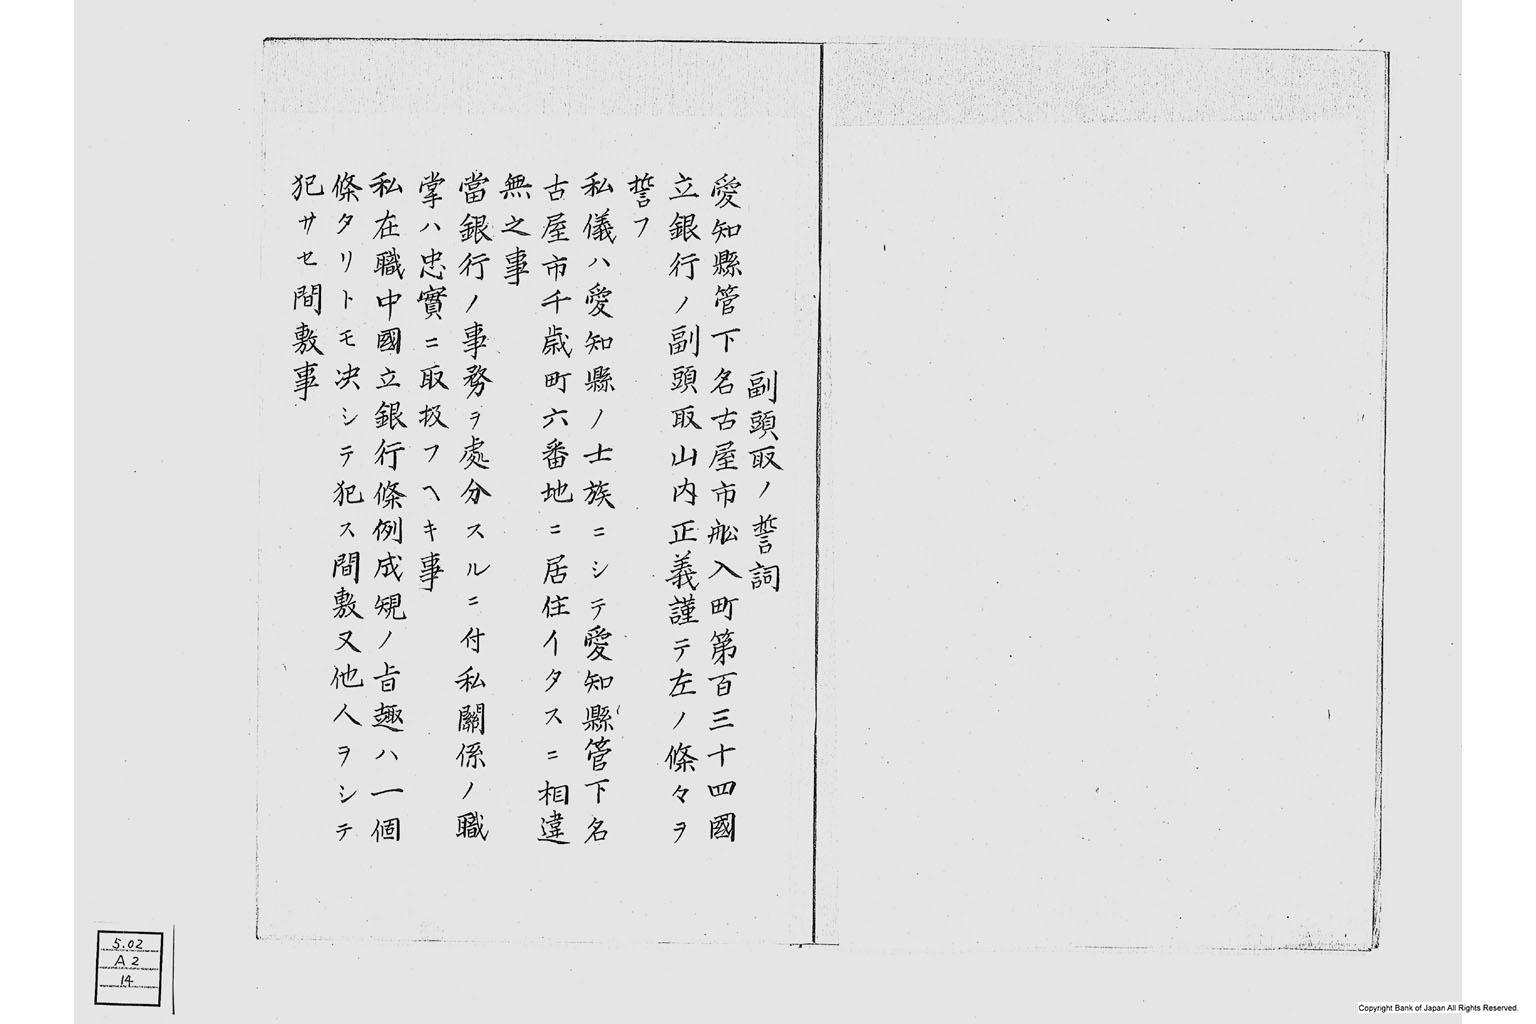 副頭取ノ誓詞
愛知縣管下名古屋市舩入町第百三十四國
立銀行ノ副頭取山内正義謹テ左ノ條々ヲ
誓フ
私儀ハ愛知縣ノ士族ニシテ愛知縣管下名
古屋市千歳町六番地ニ居住イタスニ相違
無之事
當銀行ノ事務ヲ處分スルニ付私關係ノ職
掌ハ忠實ニ取扱フヘキ事
私在職中國立銀行條例成規ノ旨趣ハ一個
條タリトモ决シテ犯ス間敷又他人ヲシテ
犯サセ間敷事
5.02
A2
14
Copyright Bank of Japan All Rights Reserved.